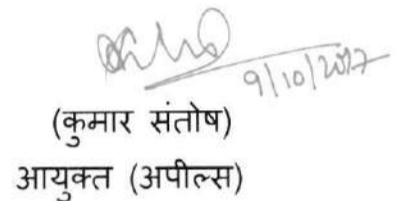 9/10/2017
(कुमार संतोष)
आयुक्त (अपील्स)